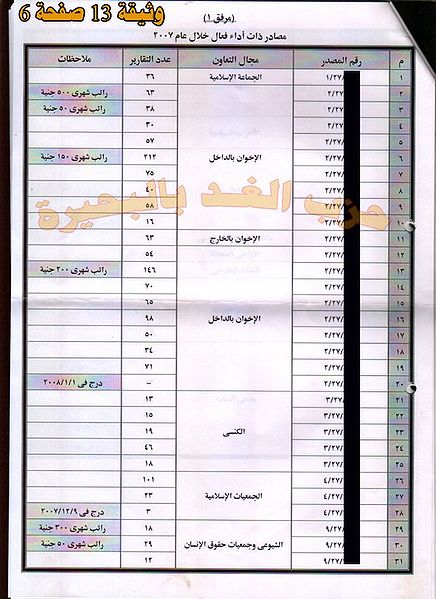 وثيقة 13 صفحة 6
(مرفق ١)
مصادر ذات أداء فعال خلال عام ٢٠٠٧
م رقم المصدر مجال التعاون عدد التقارير ملاحظات
١ ١/٢٧ الجماعة الإسلامية ٣٦
٢ ٢/٢٧ ٦٣ راتب شهرى ٥٠٠ جنية
٣ ٢/٢٧ ٣٨ راتب شهرى ٥٠ جنية
٤ ٢/٢٧ ٣٠
٥ ٢/٢٧ ٥٧
٦ ٢/٢٧ الإخوان بالداخل ٢١٢ راتب شهرى ١٥٠ جنية
٧ ٢/٢٧ ٧٥
٨ ٢/٢٧ ٤٠
٩ ٢/٢٧ ٥٨
حزب الغد بالبحيرة
٢/٢٧ ١٦
١١ ٢/٢٧ الإخوان بالخارج ٦٣
١٢ ٢/٢٧ ٥٤
١٣ ٢/٢٧ ١٤٦ راتب شهرى ٢٠٠ جنية
١٤ ٢/٢٧ ٧٠
١٥ ٢/٢٧ ٦٥
١٦ ٢/٢٧ الإخوان بالداخل ٩٨
١٧ ٢/٢٧ ٥٠
١٨ ٢/٢٧ ٣٤
١٩ ٢/٢٧ ٧١
٢٠ ٢/٢٧ – درج فى ٢٠٠٨/١/١
٢١ ٣/٢٧ ١٣
٢٢ ٣/٢٧ ١٥
٢٣ ٣/٢٧ الكنسى ١٩
٢٤ ٣/٢٧ ٤٦
٢٥ ٣/٢٧ ١٨
٢٦ ٤/٢٧ ١٠١
٢٧ ٤/٢٧ الجمعيات الإسلامية ٢٣
٢٨ ٤/٢٧ ٣ درج فى ٢٠٠٧/١٢/٩
٢٩ ٩/٢٧ ١٨ راتب شهرى ٣٠٠ جنية
٣٠ ٩/٢٧ الشيوعى وجمعيات حقوق الإنسان ٢٩ راتب شهرى ٥٠ جنية
٣١ ٩/٢٧ ١٢